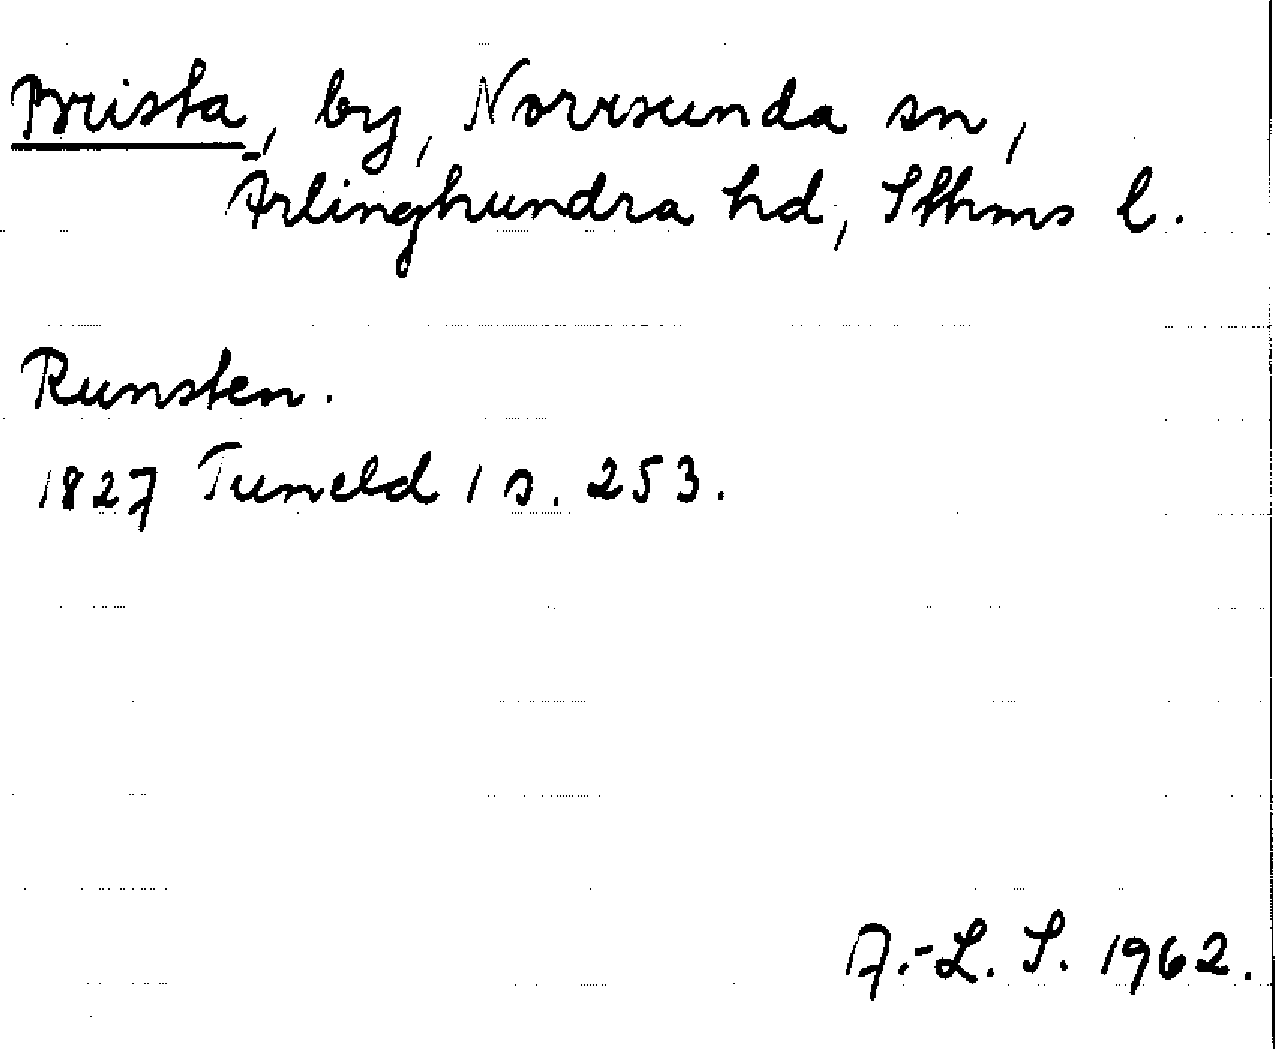 Brista, by, Norrsunda sn,
Ärlinghundra hd, Sthms l.
Runsten.
1827 Tuneld 1 s. 253.
A.-L. S. 1962.